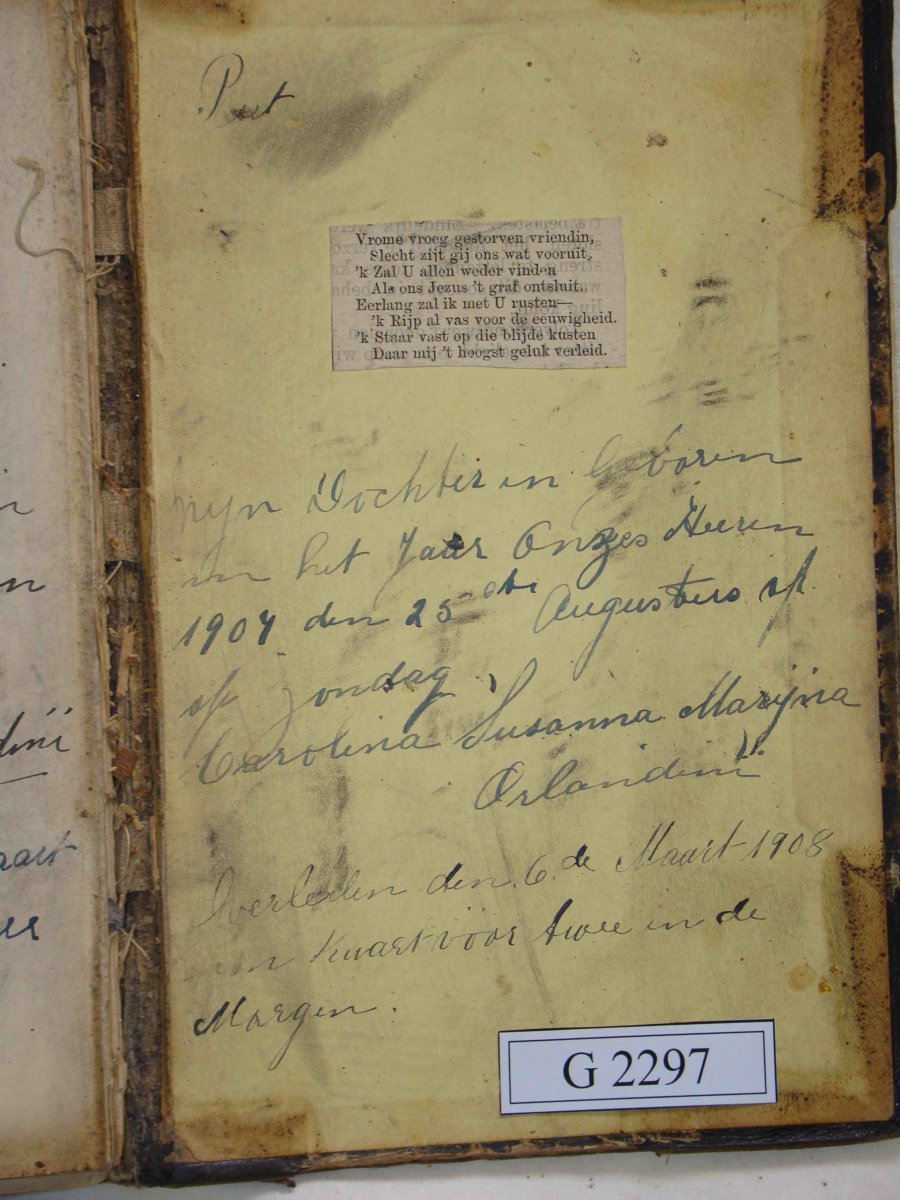 n
n
dinï
aart
er
Piet
Vrome vroeg gestorven vriendin,
Slecht zijt gij ons wat vooruit,
'k Zal U allen weder vinden
Als ons Jezus 't graf ontsluit.
Eerlang zal ik met U rusten—
'k Rijp al vas voor de eeuwigheid.
'k Staar vast op die blijde kusten
Daar mij 't hoogst geluk verleid.
Mijn Dochter in Geboren
in het Jaar Onzes Heeren
1907 den 25 ste Augustus op
op zondag
Carolina Susanna Marijna
Orlandinï
Overleden den 6 de Maart 1908
om Kwart voor twee in de
Morgen.
G 2297